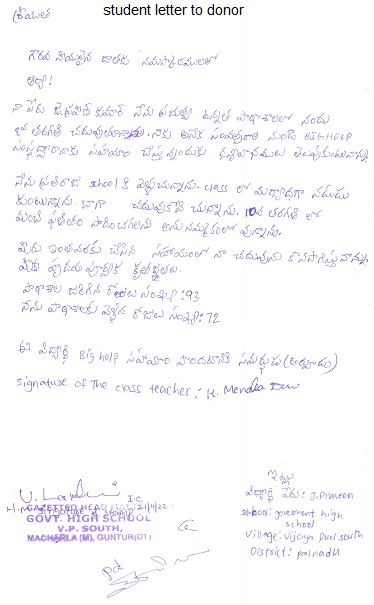 student letter to donor
శ్రీయుత
గౌరవ నీయులైన దాతకు నమస్కారములతో
ఆర్యా!
నా పేరు జె.ప్రవీణ్ కుమార్ నేను ప్రభుత్వ ఉన్నత పాఠశాలలో నందు
తరగతి చదువుతున్నాను. నాకు అనేక సంవత్సరాల నుండి BIGHELP
సంస్థ ద్వారా నాకు సహాయం చేస్తున్నందుకు ధన్యవాదములు తెలుపుకుంటున్నాను
నేను ప్రతిరోజు school కి వెళ్ళుచున్నాను. class లో మర్యాదగా నడుచు
కుంటున్నాను. బాగా చదువుకొను చున్నాను. 10వ తరగతి లో
మంచి ఫలితం సాధించగలనని అను నమ్మకంలో వున్నాను.
మీరు ఇంతవరకు చేసిన సహాయంలో నా చదువును కొనసాగిస్తున్నాను.
మీకు హృదయ పూర్వక కృతజ్ఞతలు.
పాఠశాల జరిగిన రోజులు సంఖ్య: 93
నేను పాఠశాలకు వెళ్లిన రోజులు సంఖ్య: 72
ఈ విద్యార్థి Big help సహాయం పొందటానికి సమర్థుడు (అర్హుడు)
signature of The class teacher: K.
I.C
H.M signature & stamp
GAZETTED HEAD
GOVT. HIGH SCHOOL
V.P. SOUTH,
MACHARLA (M), GUNTUR(DT)
ఇట్లు
విద్యార్థి పేరు: J. Praveen
school: government high
school
village: vijaya puri south
District: palnadu